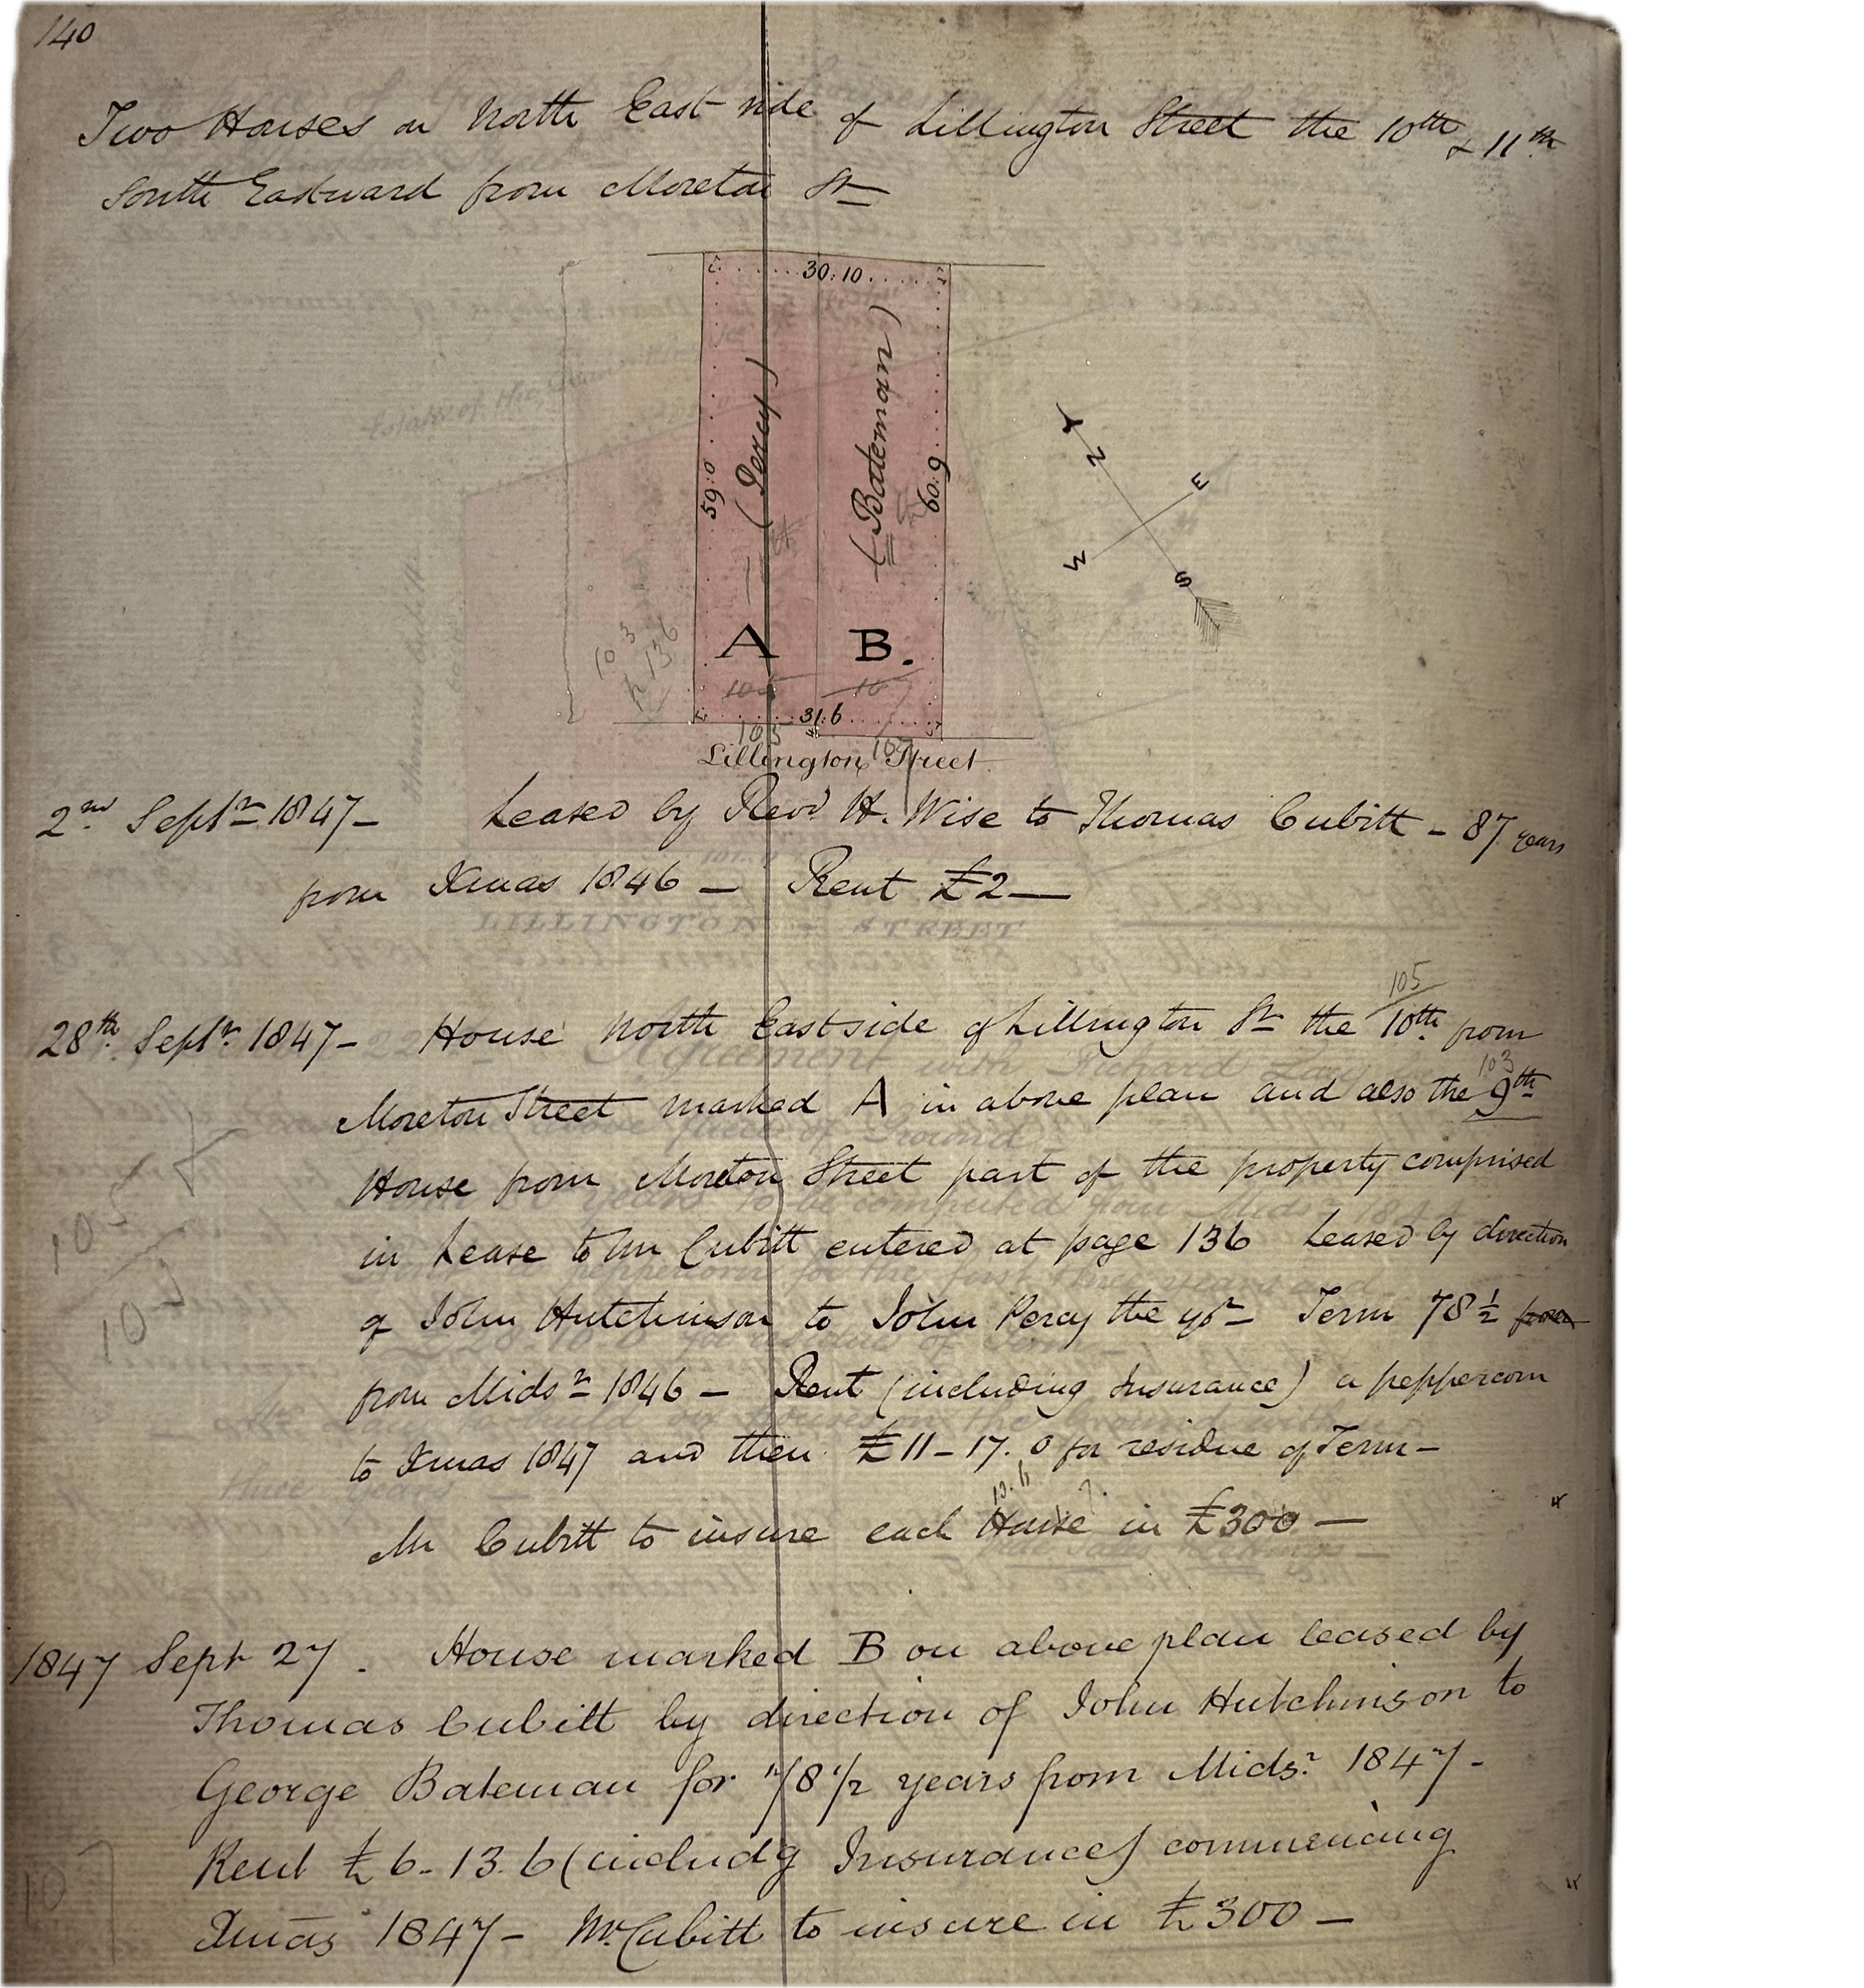 140
Two Houses on North East side of Lillington Street the 10th & 11th
South Eastward from Moreton St
30:10
59:0
(Percy)
(Bateman)
60:9
N
E
W
S
103
p 136
A
B.
105
107
31:6
105
107
Lillington Street
2nd Septr 1847 – Leased by Revd H. Wise to Thomas Cubitt – 87 years
from Xmas 1846 – Rent £2 –
LILLINGTON STREET
105
28th Septr 1847 – House North East side of Lillington St the 10th from
103
Moreton Street marked A in above plan and also the 9th
House from Moreton Street part of the property comprised
105
103
in Lease to Mr Cubitt entered at page 136 Leased by direction
of John Hutchinson to John Percy the yr Term 78½ from
from Midsr 1846 – Rent (including Insurance) a peppercorn
to Xmas 1847 and then £11–17.0 for residue of Term –
13.6 ?
Mr Cubitt to insure each House in £300 –
1847 Sept 27. House marked B on above plan leased by
Thomas Cubitt by direction of John Hutchinson to
George Bateman for 78 1/2 years from Midsr 1847 –
Rent £6–13.6 (includg Insurance) commencing
107
Xmas 1847 – Mr Cubitt to insure in £300 –